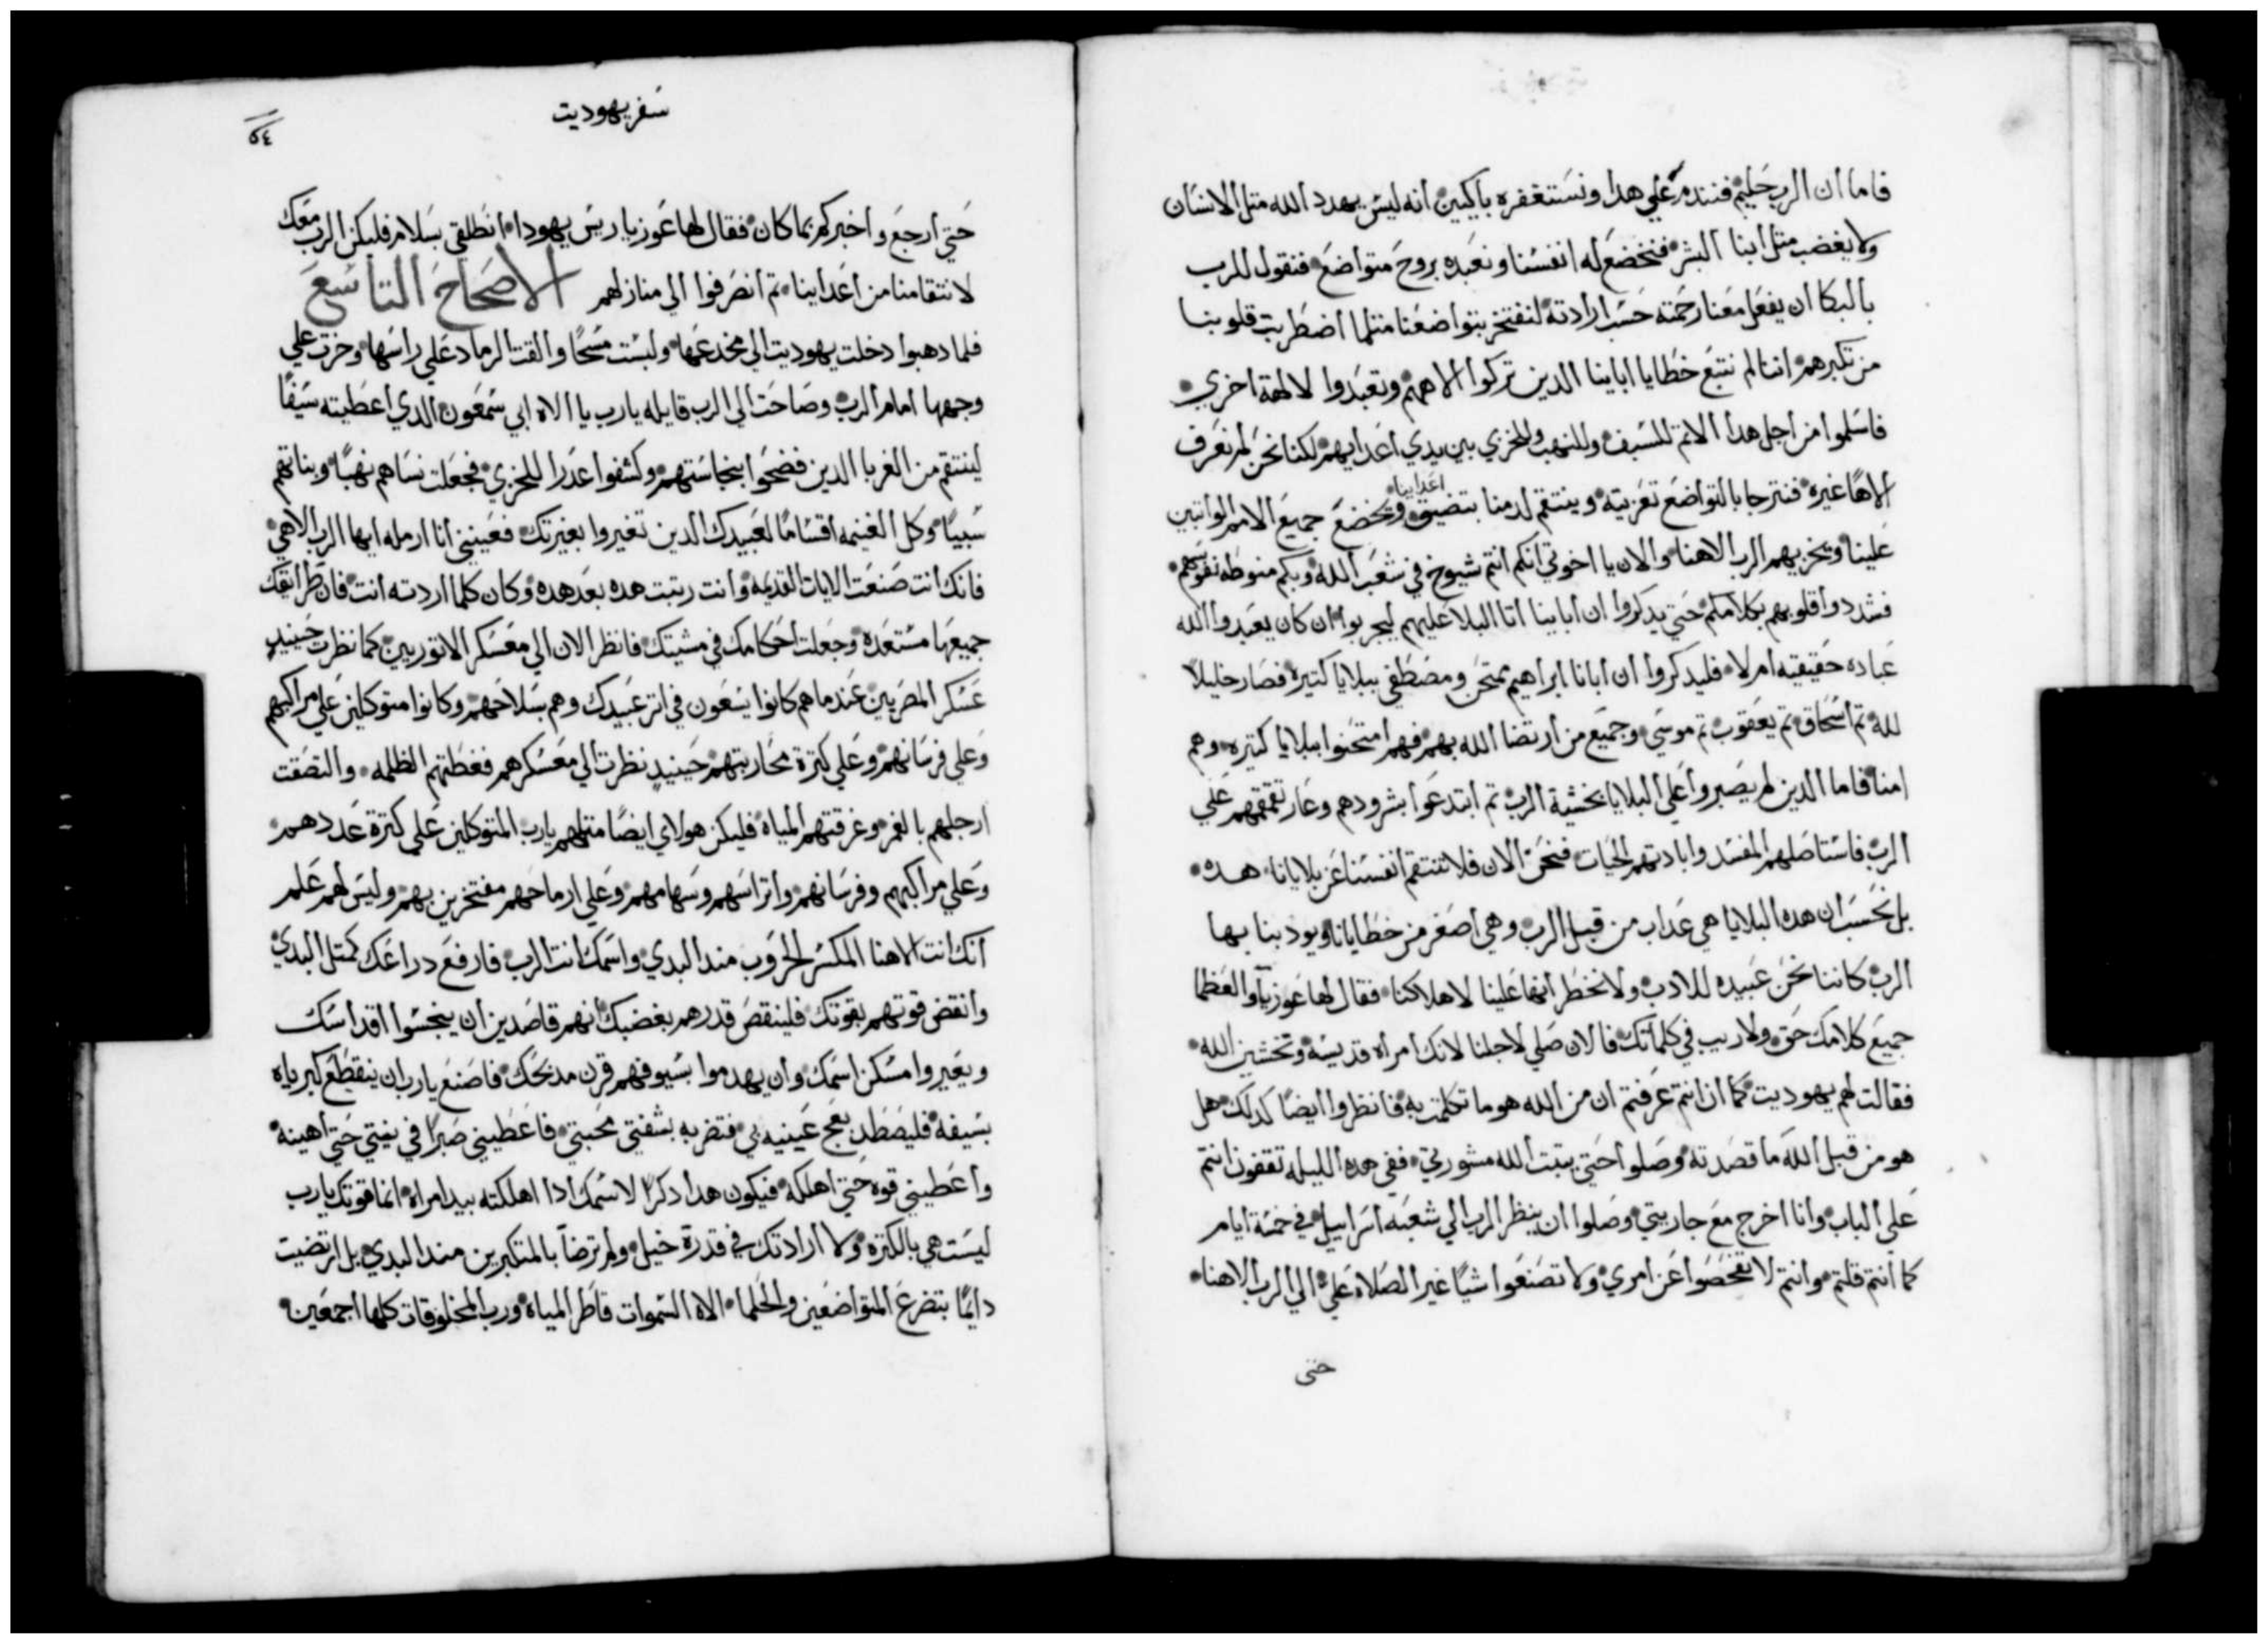 فاما ان الرب حليم فنندم علي هدا ونستغفره باكيين انه ليس يهدد الله متل الانسان
ولا يغضب متل ابنا البشر فنخضع له انفسنا ونعبده بروح متواضع فنقول للرب
بالبكا ان يفعل معنا رحمته حسب ارادته لنفتخر بتواضعنا متلما اضطربت قلوبنا
من تكبرهم اننا لم نتبع خطايا اباينا الدين تركوا الاههم وتعبدوا لالهة اخري
فاسلموا من اجل هدا الاتم للسيف وللنهب وللخزي بين يدي اعدايهم لكننا نحن لم نعرف
الاهًا غيره فنترجا بالتواضع تعزيته وينتقم لدمنا بتضيق اعداينا ويخضع جميع الامم الواتبين
علينا ويخزيهم الرب الاهنا والان يا اخوتي انكم انتم شيوخ في شعب الله وبكم منوطه نفوسهم
فشددوا قلوبهم بكلامكم حتي يدكروا ان اباينا اتا البلا عليهم ليجربوا ان كان يعبدوا الله
عباده حقيقيه ام لا فليدكروا ان ابانا ابراهيم امتحن ومصطفي ببلايا كتيره فصار خليلا
لله تم اسحاق تم يعقوب تم موسي وجميع من ارتضا الله بهم فهم امتحنوا ببلايا كتيره وهم
امنا فاما الدين لم يصبروا علي البلايا بخشية الرب تم ابتدعوا بشرودهم وعار تقمقمهم علي
الرب فاستاصلهم المفسد وابادتهم الحيات فنحن الان فلا تنتقم انفسنا عن بلايانا هده
بل نحسب ان هده البلايا هي عداب من قبل الرب وهي اصغر من خطايانا ويودبنا بها
الرب كاننا نحن عبيده للادب ولا نخطر انها علينا لاهلاكنا فقال لها عوزيا والعظما
جميع كلامك حق ولا ريب في كلماتك فالان صلي لاجلنا لانك امراه قديسة وتخشين الله
فقالت لهم يهوديت كما ان انتم عرفتم ان من الله هو ما تكلمت به فانظروا ايضًا كدلك هل
هو من قبل الله ما قصدته وصلوا حتي يتبت الله مشورتي ففي هده الليله تقفون انتم
علي الباب وانا اخرج مع جاريتي وصلوا ان ينظر الرب الي شعبه اسراييل في خمسة ايام
كما انتم قلتم وانتم لا تفحصوا عن امري ولا تصنعوا شيًا غير الصلاه علي الي الرب الاهنا
حتي
سفر يهوديت
٥٤
حتي ارجع واخبركم بما كان فقال لها عوزيا ريس يهودا انطلقي بسلام فليكن الرب معك
لانتقامنا من اعداينا تم انصرفوا الي منازلهم الاصحاح التاسع
فلما دهبوا دخلت يهوديت الي مخدعها ولبست مسحًا والقت الرماد علي راسها وخرت علي
وجهها امام الرب وصاحت الي الرب قايله يا رب يا الاه ابي شمعون الدي اعطيته سيفًا
لينتقم من الغربا الدين فضحوا بنجاستهم وكشفوا عدرا للخزي فجعلت نساهم نهبًا وبناتهم
سبيًا وكل الغنيمه اقسامًا لعبيدك الدين تغيروا بغيرتك فعينني انا ارمله ايها الرب الاهي
فانك انت صنعت الايات القديمه وانت رتبت هده بعد هده وكان كلما اردته انت فان طرايقك
جميعها مستعده وجعلت احكامك في مشيتك فانظر الان الي معسكر الاتوريين كما نظرت حينيدٍ
عسكر المصريين عندما هم كانوا يسعون في اتر عبيدك وهم بسلاحهم وكانوا متوكلين علي مراكبهم
وعلي فرسانهم وعلي كترة محاربتهم حينيدٍ نظرت الي معسكرهم فغطتهم الظلمه والتصقت
ارجلهم بالغمر وغرقتهم المياه فليكن هولاي ايضًا متلهم يا رب المتوكلين علي كترة عددهم
وعلي مراكبهم وفرسانهم واتراسهم وسهامهم وعلي ارماحهم مفتخرين بهم وليس لهم علم
انك انت الاهنا المكسر الحروب مند البدي واسمك انت الرب فارفع دراعك كمتل البدي
وانقض قوتهم بقوتك فلينقص قدرهم بغضبك انهم قاصدين ان ينجسوا اقداسك
ويغيروا مسكن اسمك وان يهدموا بسيوفهم قرن مدبحك فاصنع يا رب ان ينقطع كبرياه
بسيفه فليصطد بفخ عينيه بي فتضربه بشفتي محبتي فاعطيني صبرًا في نيتي حتي اهينه
واعطيني قوه حتي اهلكه فيكون هدا دكرًا لاسمك ادا اهلكته بيد امراه انما قوتك يا رب
ليست هي بالكتره ولا ارادتك في قدرة خيل ولم ترضا بالمتكبرين مند البدي بل ارتضيت
دايمًا بتضرع المتواضعين والحلما الاه السموات فاطر المياه ورب المخلوقات كلها اجمعين